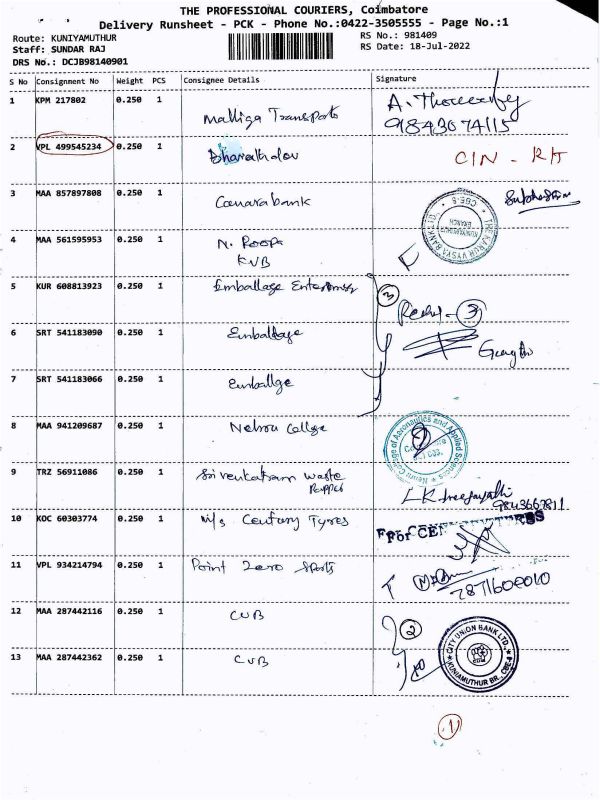 THE PROFESSIONAL COURIERS, Coimbatore
Delivery Runsheet - PCK - Phone No.:0422-3505555 - Page No.:1
Route: KUNIYAMUTHUR
RS No.: 981409
Staff: SUNDAR RAJ
RS Date: 18-Jul-2022
DRS No.: DCJB98140901
S No Consignment No Weight PCS Consignee Details Signature
1 KPM 217802 0.250 1 Malliga Transports
98430 74115
2 VPL 499545234 0.250 1 Bharathdev CIN - RH
3 MAA 857897808 0.250 1 Canara bank
THE KARUR VYSYA BANK
KUNIYAMUTHUR
BRANCH
4 MAA 561595953 0.250 1 N. Roopa
KVB
5 KUR 608813923 0.250 1 Emballage Enterprises 3
3
6 SRT 541183090 0.250 1 Emballage
7 SRT 541183066 0.250 1 Emballge
8 MAA 941209687 0.250 1 Nehru College
Nehru College of Aeronautics and Applied Sciences
9 TRZ 56911086 0.250 1 Sri venkatram waste
9843667811
10 KOC 60303774 0.250 1 M/s Century Tyres
11 VPL 934214794 0.250 1 Point Zero Sports
7871600010
12 MAA 287442116 0.250 1 CUB 2
CITY UNION BANK LTD.,
KUNIAMUTHUR BR., CBE-8
13 MAA 287442362 0.250 1 CUB
1